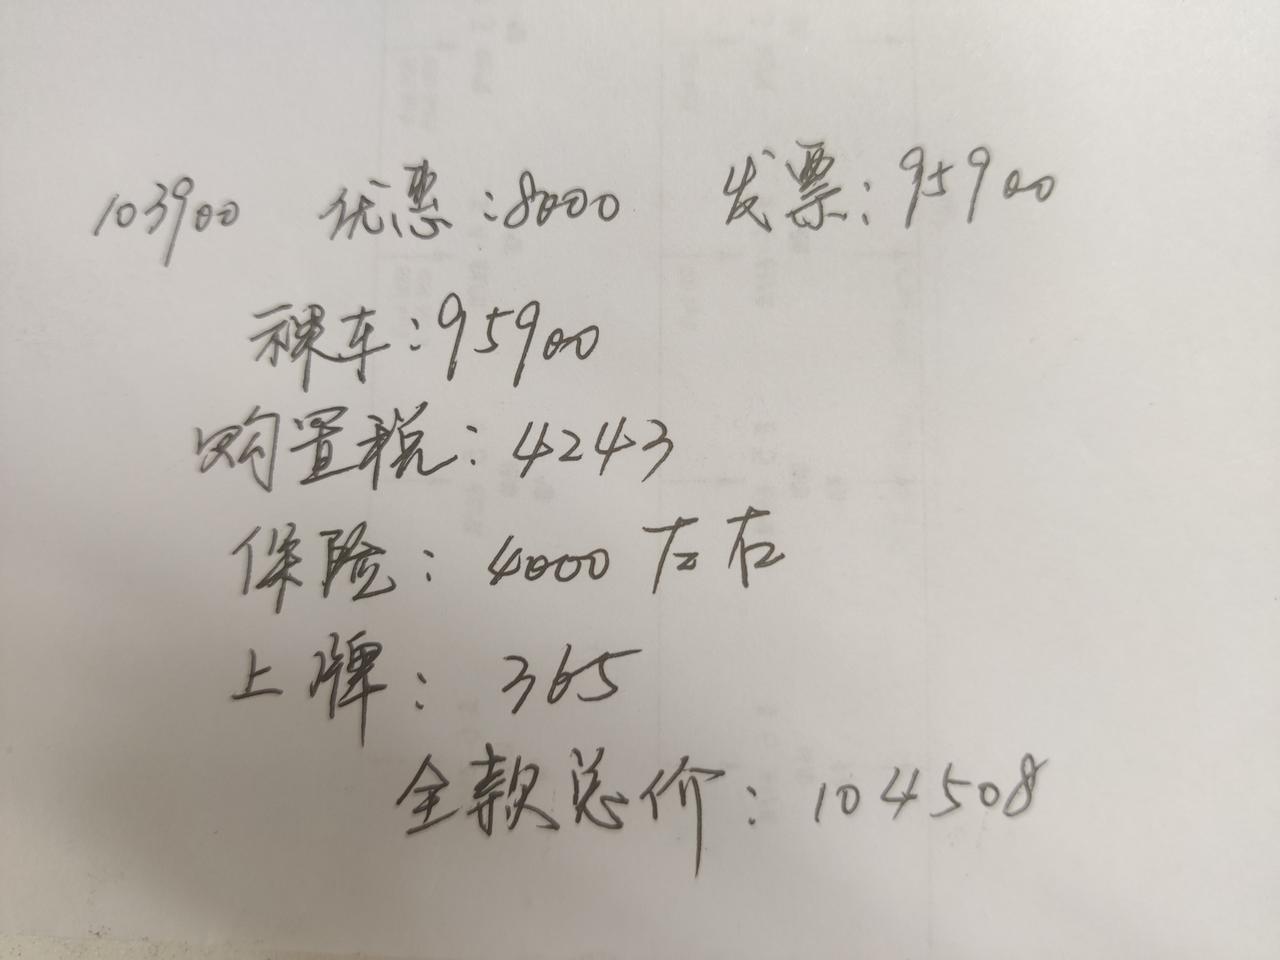 103900 优惠:8000 发票:95900
裸车:95900
购置税:4243
保险:4000左右
上牌:365
全款总价:104508